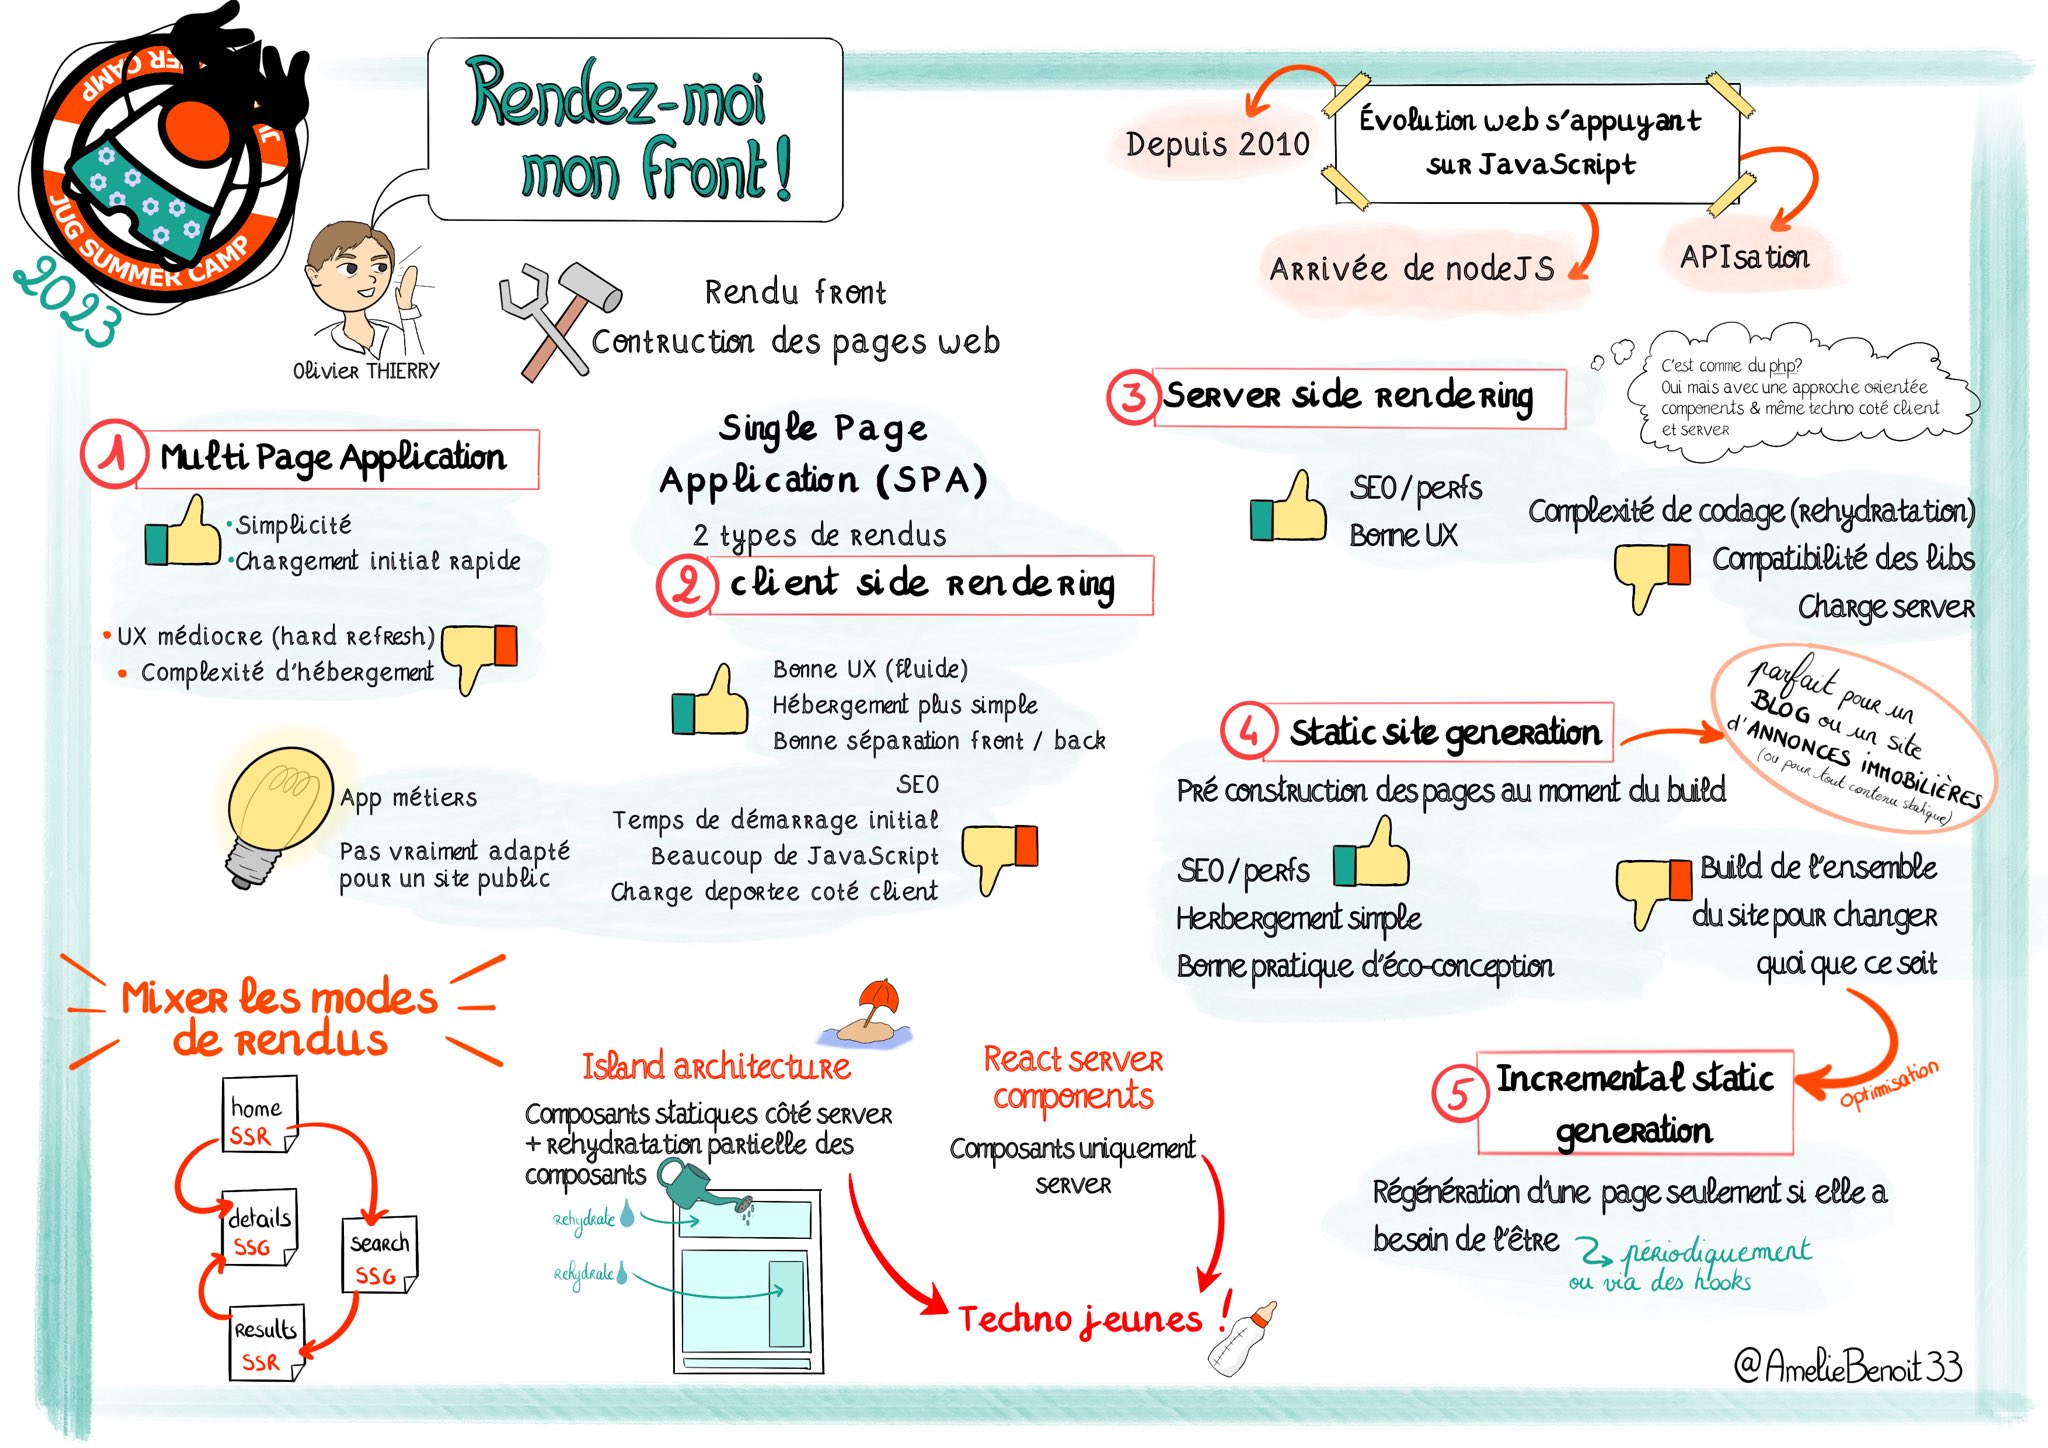 JUG SUMMER CAMP
2023
Rendez-moi
mon front !
Olivier THIERRY
Rendu front
Contruction des pages web
Évolution web s'appuyant
sur JavaScript
Depuis 2010
Arrivée de nodeJS
APIsation
1 Multi Page Application
• Simplicité
• Chargement initial rapide
• UX médiocre (hard refresh)
• Complexité d'hébergement
App métiers
Pas vraiment adapté
pour un site public
Single Page
Application (SPA)
2 types de rendus
2 client side rendering
Bonne UX (fluide)
Hébergement plus simple
Bonne séparation front / back
SEO
Temps de démarrage initial
Beaucoup de JavaScript
Charge deportee coté client
3 Server side rendering
C'est comme du php?
Oui mais avec une approche orientée
components & même techno coté client
et server
SEO / perfs
Bonne UX
Complexité de codage (rehydratation)
Compatibilité des libs
Charge server
4 Static site generation
parfait pour un
BLOG ou un site
d'ANNONCES immobilières
(ou pour tout contenu statique)
Pré construction des pages au moment du build
SEO / perfs
Herbergement simple
Bonne pratique d'éco-conception
Build de l'ensemble
du site pour changer
quoi que ce soit
optimisation
5 Incremental static
generation
Régénération d'une page seulement si elle a
besoin de l'être
périodiquement
ou via des hooks
Mixer les modes
de rendus
home
SSR
details
SSG
search
SSG
results
SSR
Island architecture
Composants statiques côté server
+ rehydratation partielle des
composants
rehydrate
rehydrate
React server
components
Composants uniquement
server
Techno jeunes !
@AmelieBenoit33